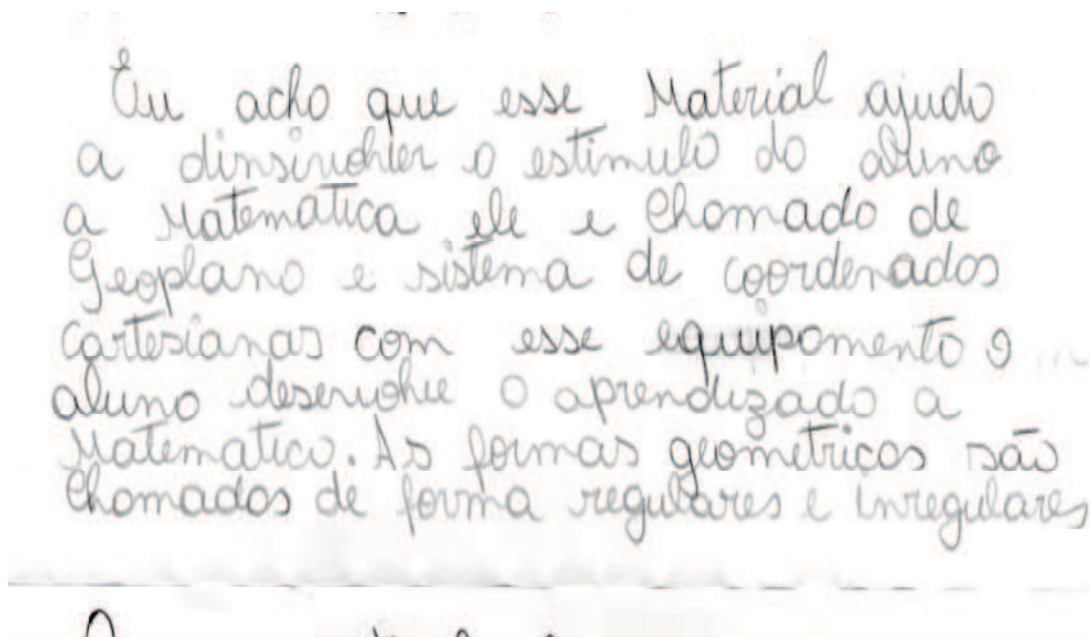 Eu acho que esse Material ajudo
a dinsirvohier o estimulo do aluno
a Matematica ele e Chomado de
Geoplano e sistema de coordenados
cartesianas com esse equipomento o
aluno desenvohie o aprendizado a
Matematico. As formas geometricos são
Chomados de forma regulares e inregulares